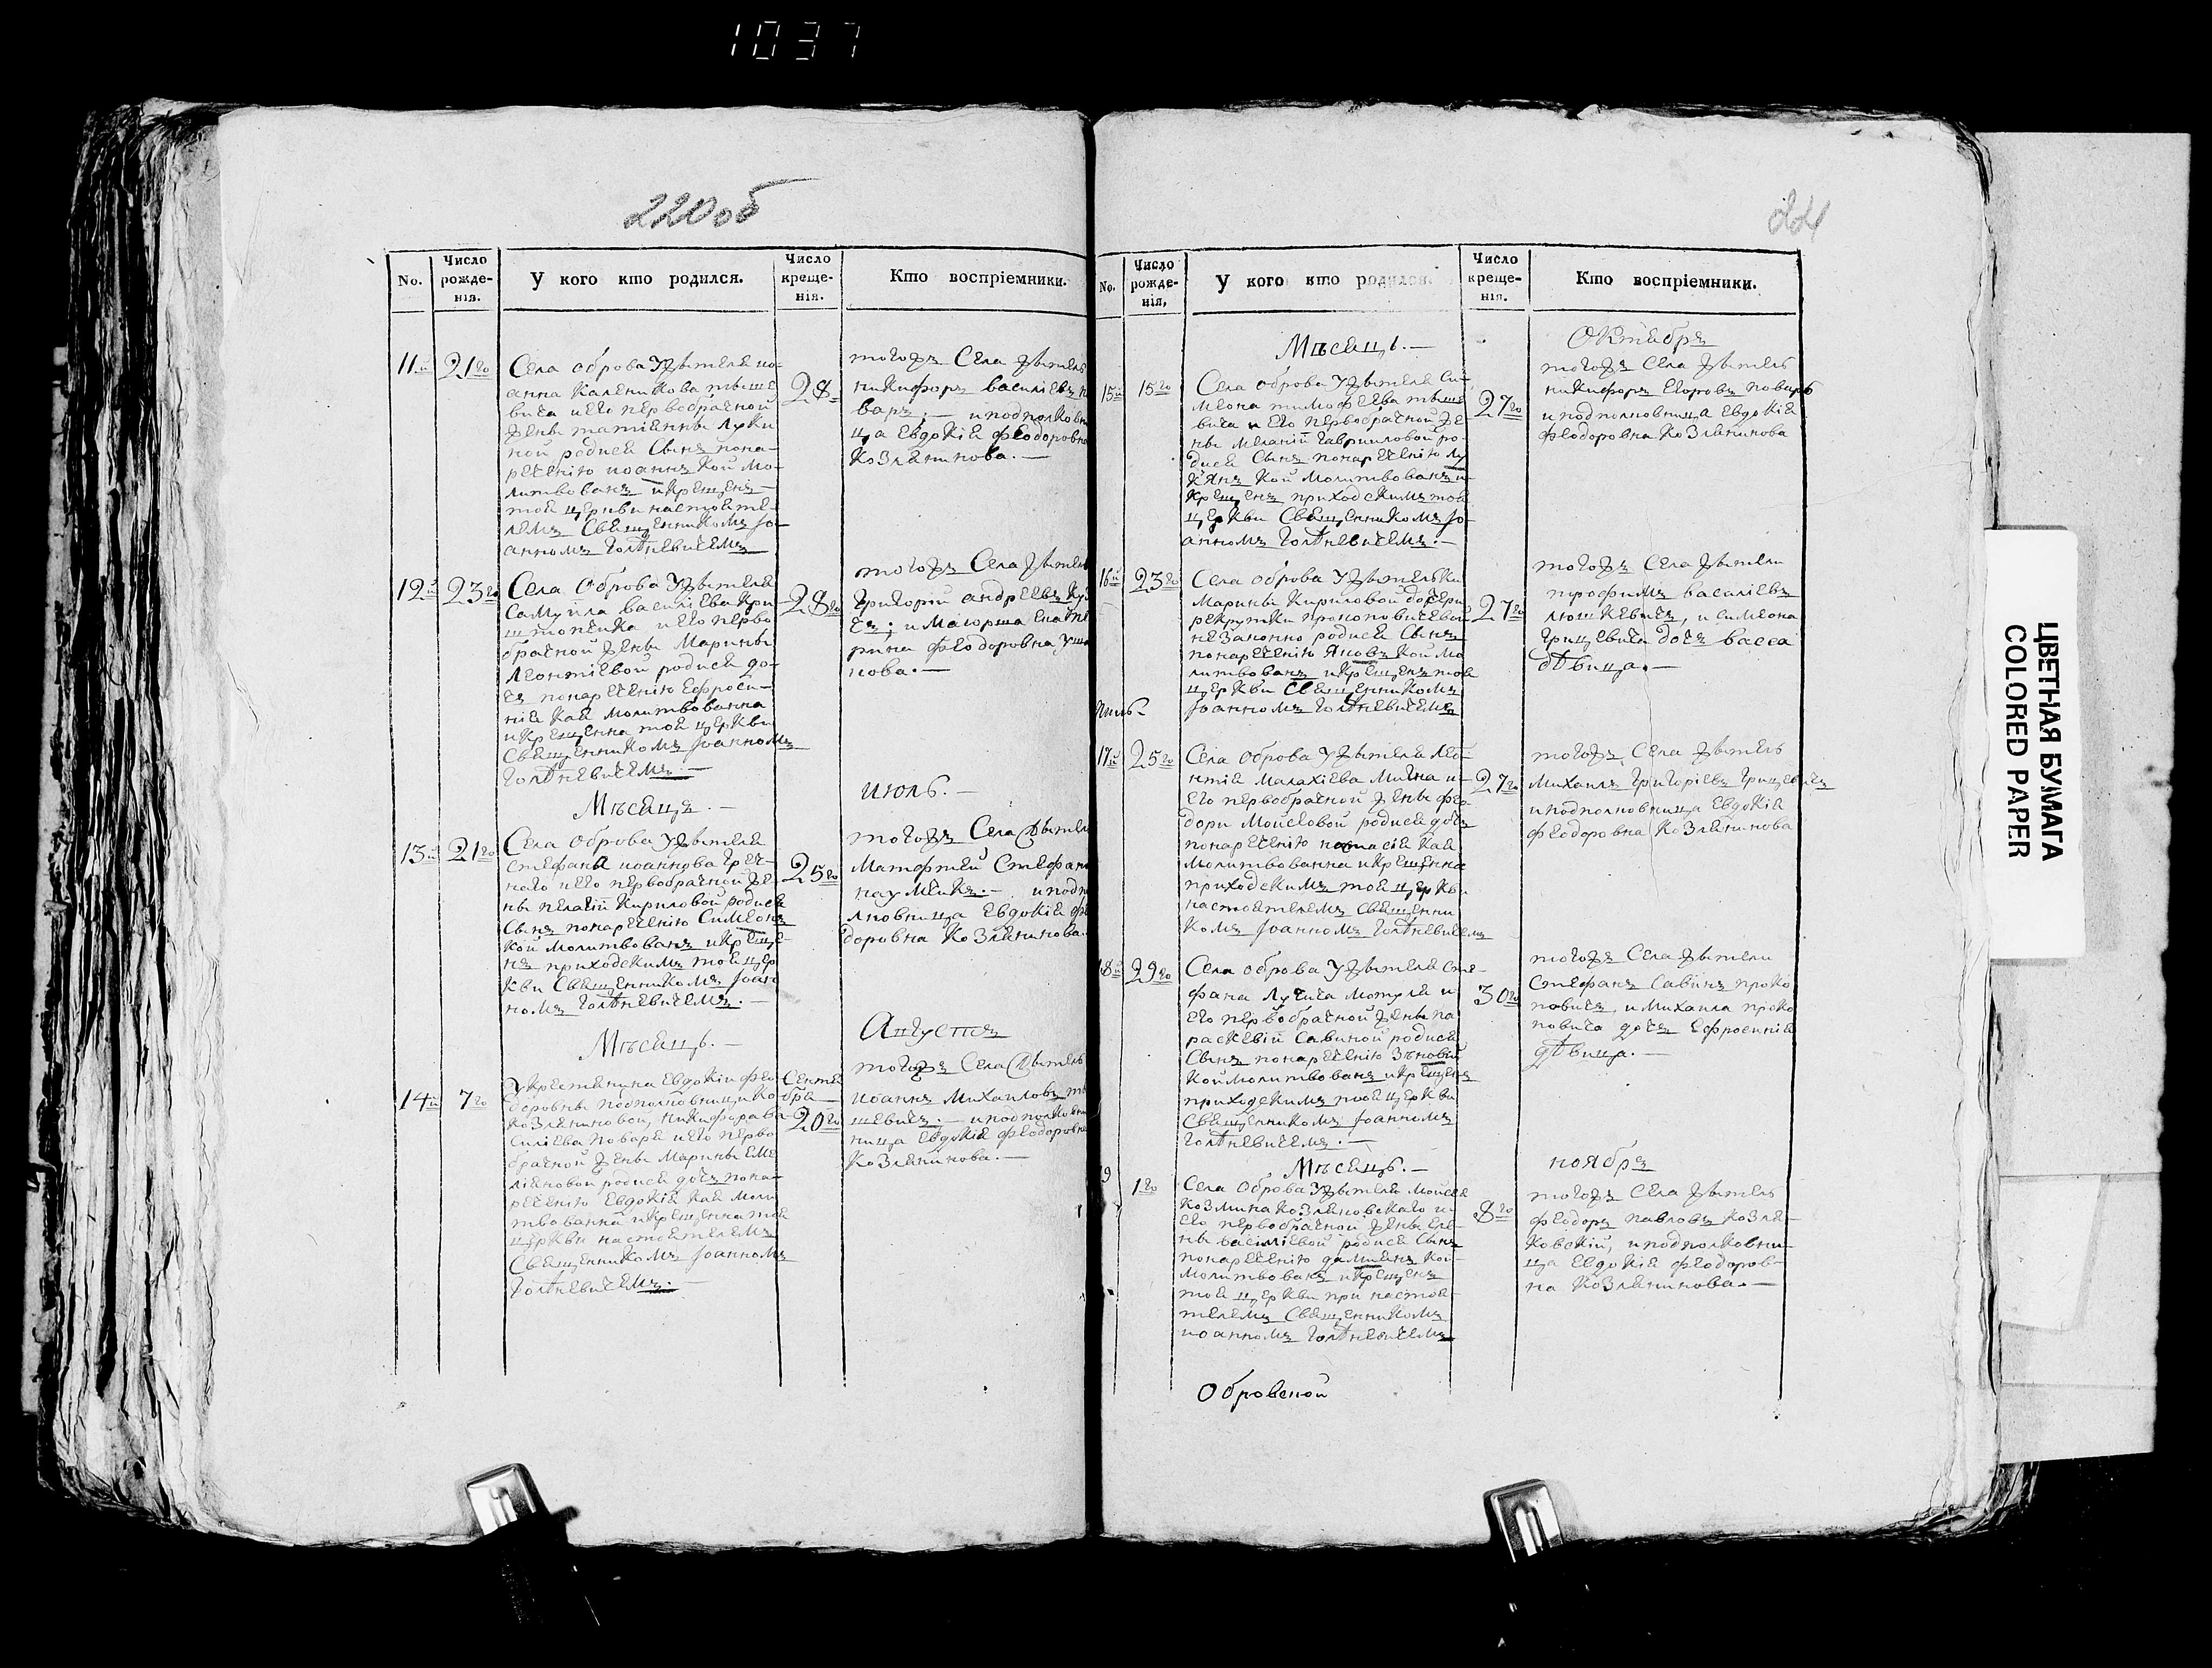 1037
220 об
No.
Число рожде-нія.
У кого кто родился.
Число креще-нія.
Кто воспріемники.
11й
21го
Села оброва У Жытеля ио-
анна Каленикова тыше
вича и его первобрачной
Жены татiянны Луки
ной родися Сынъ пона-
речению иоаннъ Кой мо-
литвованъ и крещенъ
тоя церкви настояте-
лемъ Священникомъ Іо-
анномъ Голѣневичемъ
28
тогожъ Села Жытель
никифоръ василіевъ
варъ; — и подполковни
ца Евдокія Феодоровна
Козлянинова. —
12й
23го
Села Оброва У Жытеля
Самуила василіева Кри-
штопчика и его перво
брачной Жены Марины
Леонтіевой родися до-
чъ понаречению Ефроси-
нія Кая молитвованна
и крещенна тоя церкви
Священникомъ Іоанномъ
Голѣневичемъ. —
28го
тогожъ Села Жытель
Григорій андреевъ
и Маіорша Екате
рина Феодоровна Уша
кова. —
Мѣсяцъ. —
июль. —
13й
21го
Села Оброва У Жытеля
Стефана иоаннова Греч-
наго и его первобрачной Же-
ны пелагіи Кириловой родися
Сынъ понаречению Симеонъ
Кой молитвованъ и креще-
нъ приходскимъ тоя цер
кви Священникомъ Іоан
номъ Голѣневичемъ. —
25го
тогожъ Села Жытель
Матфтей Стефан
наумчикъ. — и подпо
лковница Евдокія фе
доровна Козлянинова.
Мѣсяцъ. —
Августъ
14й
7го
У крестянина Евдокіи фео
доровны подполковницы Ко
козляниновой, никифора ва
силіева повара и его перво
брачной Жены Марины Еме
ліяновой родися дочъ пона-
речению Евдокія Кая моли
твованна и крещенна тоя
церкви настоятелемъ
Священникомъ Іоанномъ
Голѣневичемъ. —
Сентя
бря
20го
тогожъ Села Жытель
иоаннъ Михаиловъ ты
шевичъ; — и подполков
ница Евдокія Феодоровна
Козлянинова. —
No.
Число рожде-нія.
У кого кто родился.
Число креще-нія.
Кто воспріемники.
Мѣсяцъ. —
Октябръ
15й
15го
Села оброва У Жытеля Си-
меона тимофеева тыше
вича и его первобрачной Же
ны меланіи Гаврииловой ро-
дися Сынъ понаречению Лу
кянъ Кой молитвованъ и
крещенъ приходскимъ тоя
церкви Священникомъ Іо-
анномъ Голѣневичемъ. —
27го
тогожъ Села Жытель
никифоръ Егоровъ поваръ
и подполковница Евдокія
Феодоровна Козлянинова
16й
23го
Села оброва У Жытельки
Марины Кириловой дочери
рекрутки прокоповичевой
незаконно родися Сынъ
понаречению Яковъ Кой мо
литвованъ и крещенъ тоя
церкви Священникомъ
Іоанномъ Голѣневичемъ
27го
тогожъ Села Жытели
трофимъ василіевъ
люшкевичъ, и симеона
Грицевича дочъ васса
дѣвица. —
17й
25го
Села оброва У Жытеля Лео-
нтія Малахіева Мигна и
Его первобрачной Жены фео-
доры Моисеовой родися дочъ
понаречению Кая
молитвованна и крещенна
приходскимъ тоя церкви
настоятелемъ Священни
комъ Іоанномъ Голѣневичемъ
27го
тогожъ Села Жытель
Михаилъ Григоріевъ Грицевичъ
и подполковница Евдокія
феодоровна Козлянинова
18й
29го
Села оброва У Жытеля Сте-
фана Лучича мотуля и
Его первобрачной Жены па
раскевіи Савиной родися
Сынъ понаречению Зѣновій
Кой молитвованъ и крещенъ
приходскимъ тоя церкви
Священникомъ Іоанномъ
Голѣневичемъ. —
30го
тогожъ Села Жытели
Стефанъ Савинъ проко
повичъ, и Михаила проко
повича дочъ Ефросинія
дѣвица. —
Мѣсяцъ. —
ноябръ
9
1го
Села Оброва У Жытеля Моисея
Козмина Козляковскаго и
его первобрачной Жены Еле-
ны василіевой родися Сынъ
понаречению даміянъ Кой
молитвованъ и крещенъ
тоя церкви при настоя-
телемъ Священникомъ
иоанномъ Голѣневичемъ
8го
тогожъ Села Жытель
феодоръ павловъ Козля-
ковскій, и подполковни-
ца Евдокія феодоров-
на Козлянинова. —
Обровской
ЦВЕТНАЯ БУМАГА
COLORED PAPER